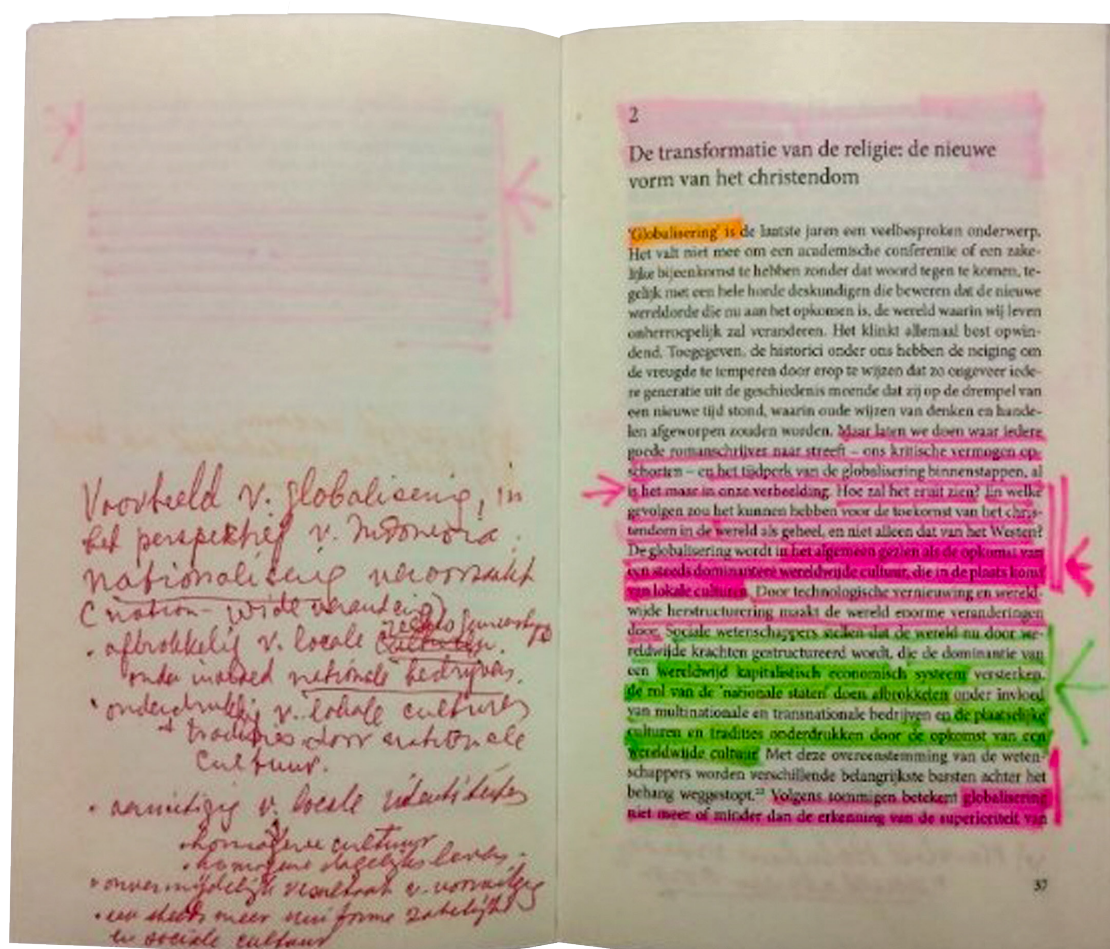 Voorbeeld v. globalisering, in
het perspektief v. Indonesia.
nationalisering veroorzaakt
(nation-wide verandering)
• afbrokkelig v. locale
onder invloed nationale bedrijven.
• onderdrukkig v. lokale cultures
+ tradities door nationale
cultuur.
• v. locale identiteiten
• homogene cultuur
• homogene dagelijks leven.
• onvermijdelijk resultaat v.
• een steeds meer uniforme zakelijke
en sociale cultuur
2
De transformatie van de religie: de nieuwe
vorm van het christendom
'Globalisering' is de laatste jaren een veelbesproken onderwerp.
Het valt niet mee om een academische conferentie of een zake-
lijke bijeenkomst te hebben zonder dat woord tegen te komen, te-
gelijk met een hele horde deskundigen die beweren dat de nieuwe
wereldorde die nu aan het opkomen is, de wereld waarin wij leven
onherroepelijk zal veranderen. Het klinkt allemaal best opwin-
dend. Toegegeven, de historici onder ons hebben de neiging om
de vreugde te temperen door erop te wijzen dat zo ongeveer iede-
re generatie uit de geschiedenis meende dat zij op de drempel van
een nieuwe tijd stond, waarin oude wijzen van denken en hande-
len afgeworpen zouden worden. Maar laten we doen waar iedere
goede romanschrijver naar streeft – ons kritische vermogen op-
schorten – en het tijdperk van de globalisering binnenstappen, al
is het maar in onze verbeelding. Hoe zal het eruit zien? En welke
gevolgen zou het kunnen hebben voor de toekomst van het chris-
tendom in de wereld als geheel, en niet alleen dat van het Westen?
De globalisering wordt in het algemeen gezien als de opkomst van
een steeds dominantere wereldwijde cultuur, die in de plaats komt
van lokale culturen. Door technologische vernieuwing en wereld-
wijde herstructurering maakt de wereld enorme veranderingen
door. Sociale wetenschappers stellen dat de wereld nu door we-
reldwijde krachten gestructureerd wordt, die de dominantie van
een wereldwijd kapitalistisch economisch systeem versterken,
de rol van de 'nationale staten' doen afbrokkelen onder invloed
van multinationale en transnationale bedrijven en de plaatselijke
culturen en tradities onderdrukken door de opkomst van een
wereldwijde cultuur. Met deze overeenstemming van de weten-
schappers worden verschillende belangrijkste barsten achter het
behang weggestopt.²³ Volgens sommigen betekent globalisering
niet meer of minder dan de erkenning van de superioriteit van
37